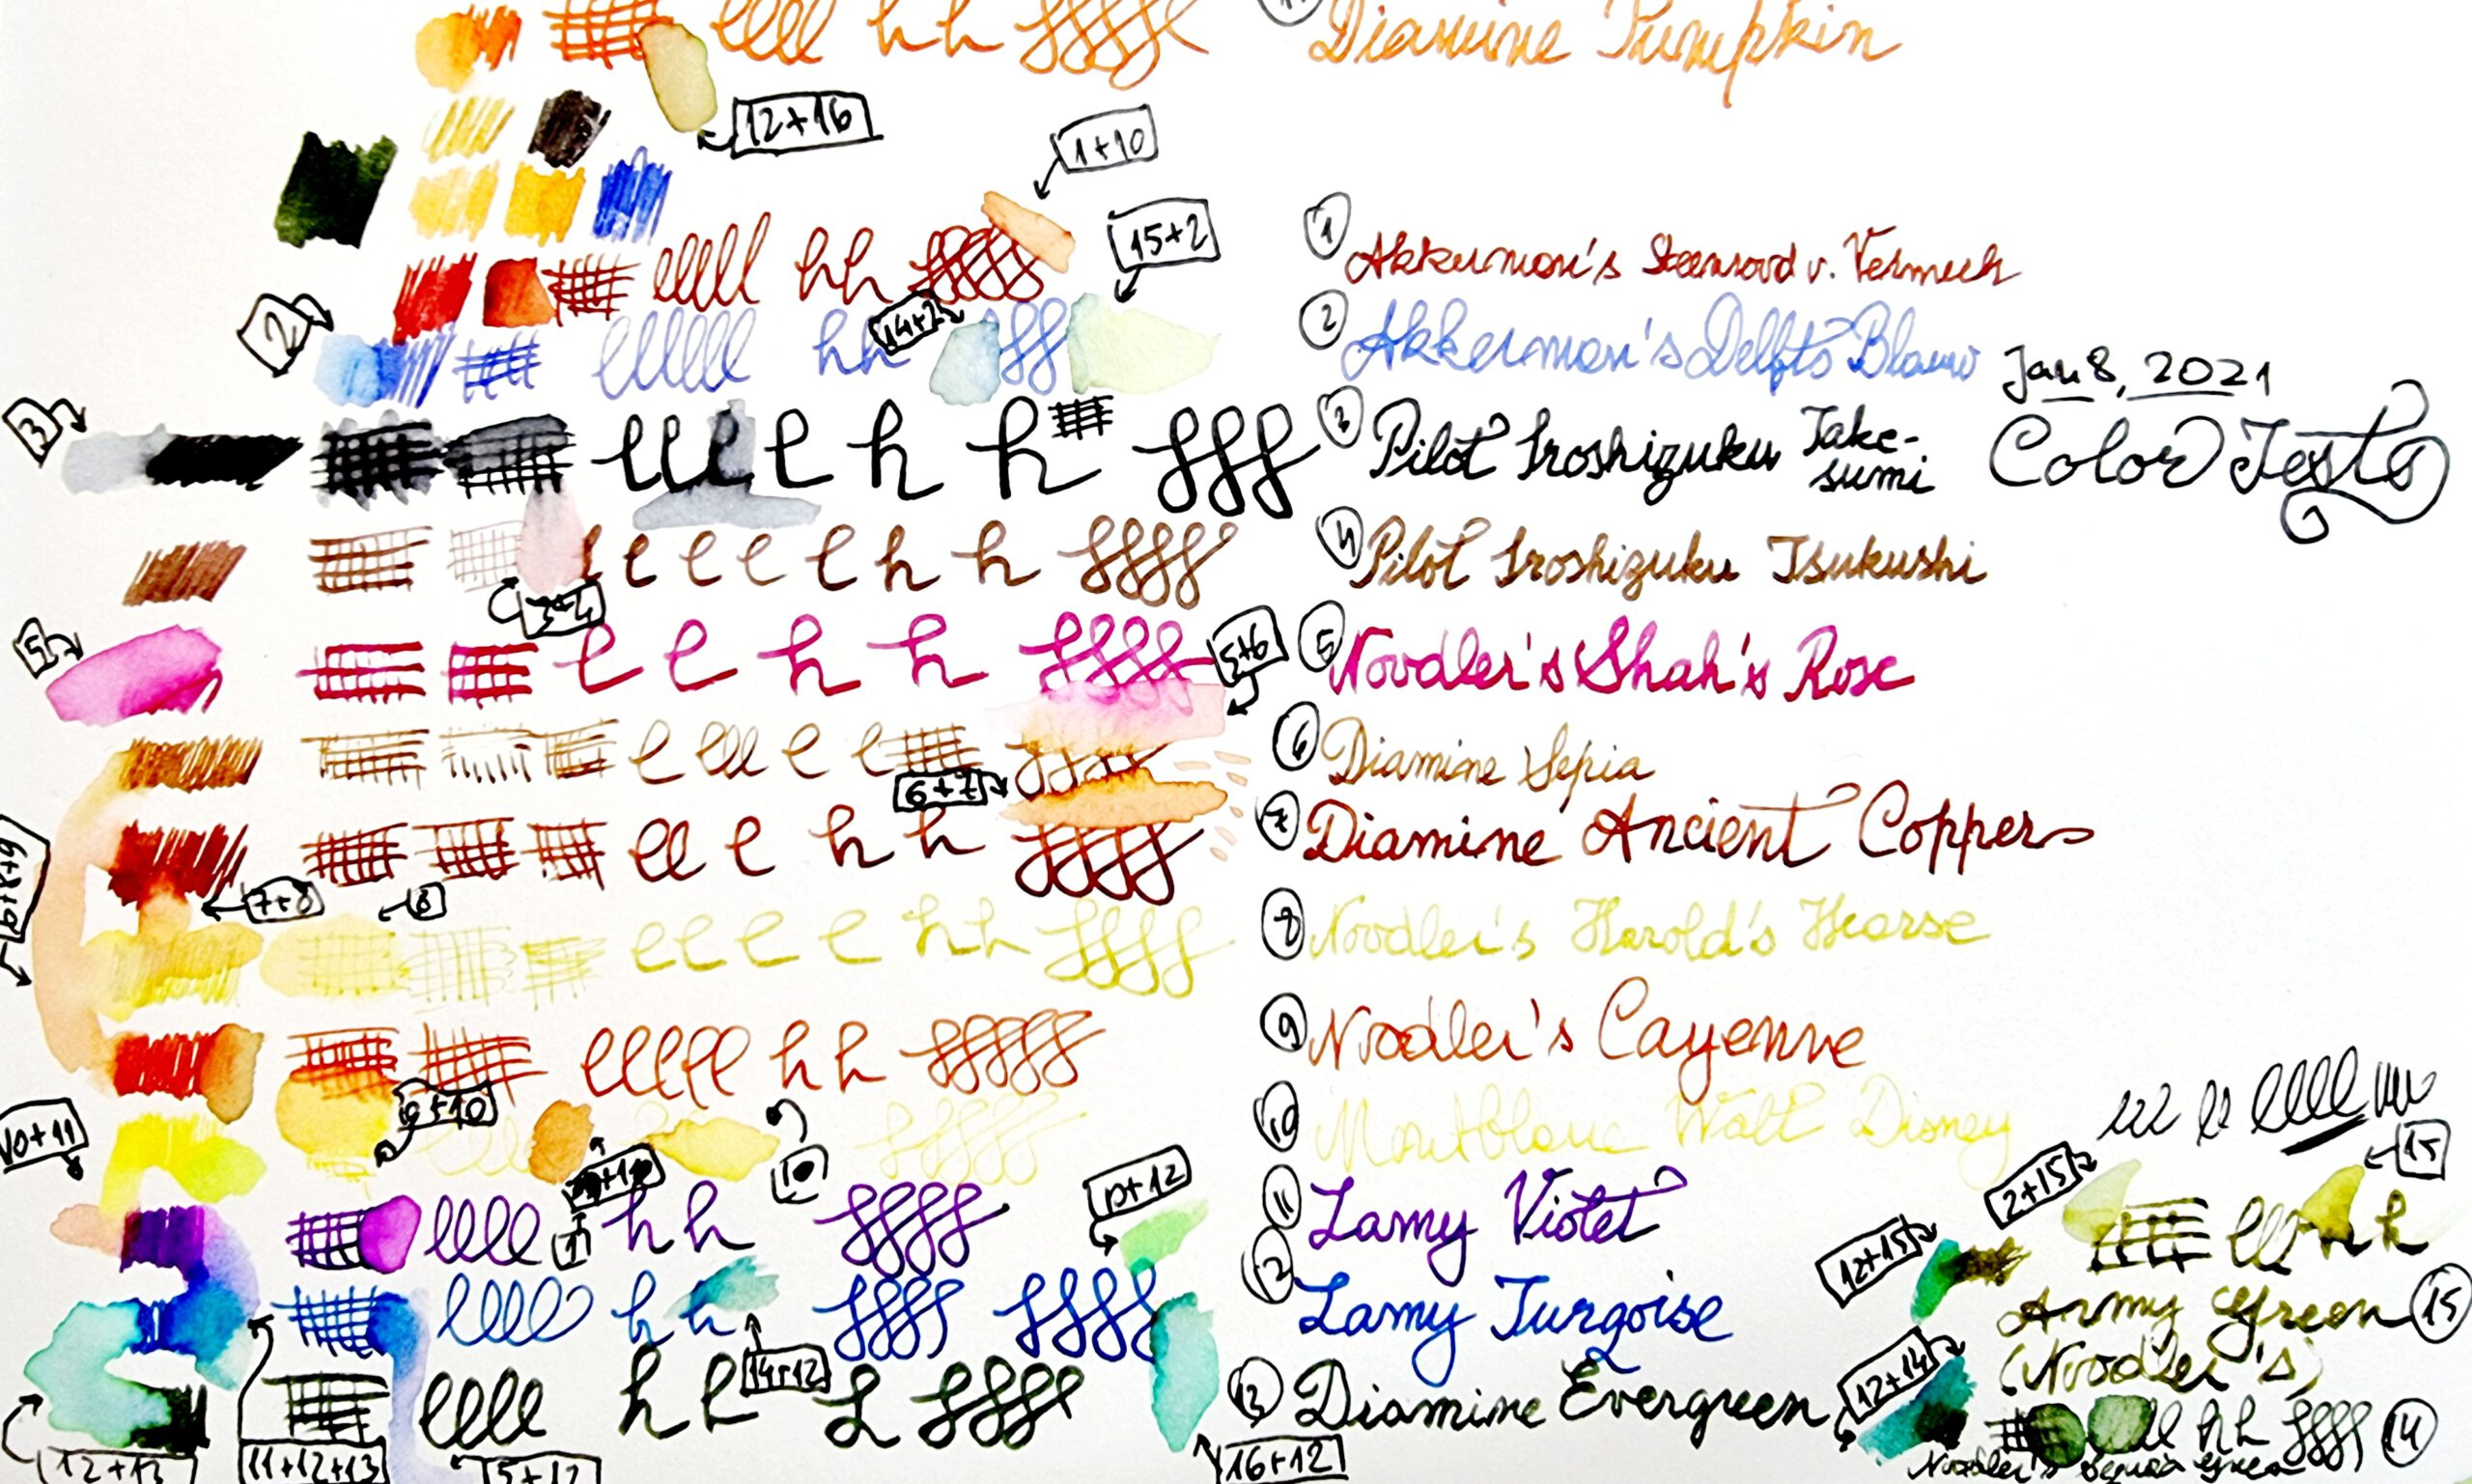 Diamine Pumpkin
12+16
1+10
15+2
① Akkerman's Steenrood v. Vermeer
2
14+2
② Akkerman's Delfts Blauw
Jan 8, 2021
Color Tests
3
③ Pilot Iroshizuku Take-
sumi
④ Pilot Iroshizuku Tsukushi
3+4
5
5+6
⑤ Noodler's Shah's Rose
⑥ Diamine Sepia
6+7
⑦ Diamine Ancient Copper
7+8
8
⑧ Noodler's Harold's Hearse
⑨ Noodler's Cayenne
9+10
10+11
10
⑩ Montblanc Walt Disney
11
⑪ Lamy Violet
10+12
⑫ Lamy Turqoise
14+12
⑬ Diamine Evergreen
12+13
11+12+13
5+12
16+12
15
2+15
12+15
Army Green ⑮
(Noodler's)
12+14
⑭
Noodler's Sequoia Green